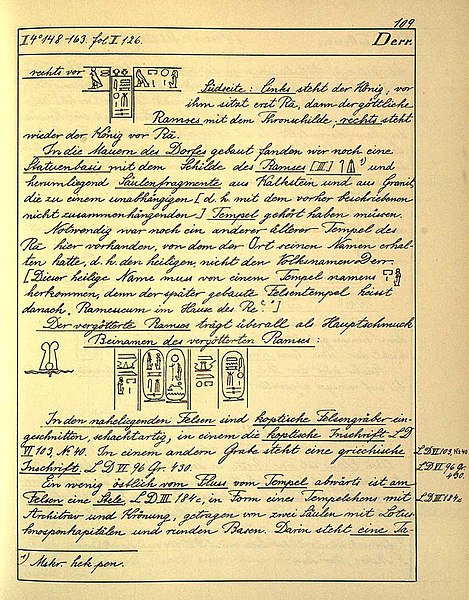 109
I 4° 148-163. fol I 126.
Derr.
rechts vor
Südseite: links steht der König, vor
ihm sitzt erst Rā, dann der göttliche
Ramses mit dem Thronschilde, rechts steht
wieder der König vor Rā.
In die Mauern des Dorfes gebaut fanden wir noch eine
Statuenbasis mit dem Schilde des Ramses [III] ¹) und
herumliegend Säulenfragmente aus Kalkstein und aus Granit,
die zu einem unabhängigen [d. h. mit dem vorher beschriebenen
nicht zusammenhängenden] Tempel gehört haben müssen.
Notwendig war noch ein anderer älterer Tempel des
Rā hier vorhanden, von dem der Ort seinen Namen erhal-
ten hatte, d. h. den heiligen, nicht den Volksnamen Derr
[Dieser heilige Name muss von einem Tempel namens
herkommen, denn der später gebaute Felsentempel heisst
danach „Ramesseum im Hause des Re“.]
Der vergötterte Ramses trägt überall als Hauptschmuck
Beinamen des vergötterten Ramses:
In den naheliegenden Felsen sind koptische Felsengräber ein-
geschnitten, schachtartig, in einem die koptische Inschrift L D
VI 103, No 40. In einem andern Grabe steht eine griechische
Inschrift. L D VI 96 Gr. 430.
L D VI 103, No 40
L D VI. 96 Gr.
430.
Ein wenig östlich vom Fluss vom Tempel abwärts ist am
Felsen eine Stele L. D. III 184c, in Form eines Tempelchens mit
L. D. III 184c
Architrav und Krönung, getragen von zwei Säulen mit Lotus-
knospenkapitälen und runden Basen. Darin steht eine Ta-
¹) Mskr. hek pen.